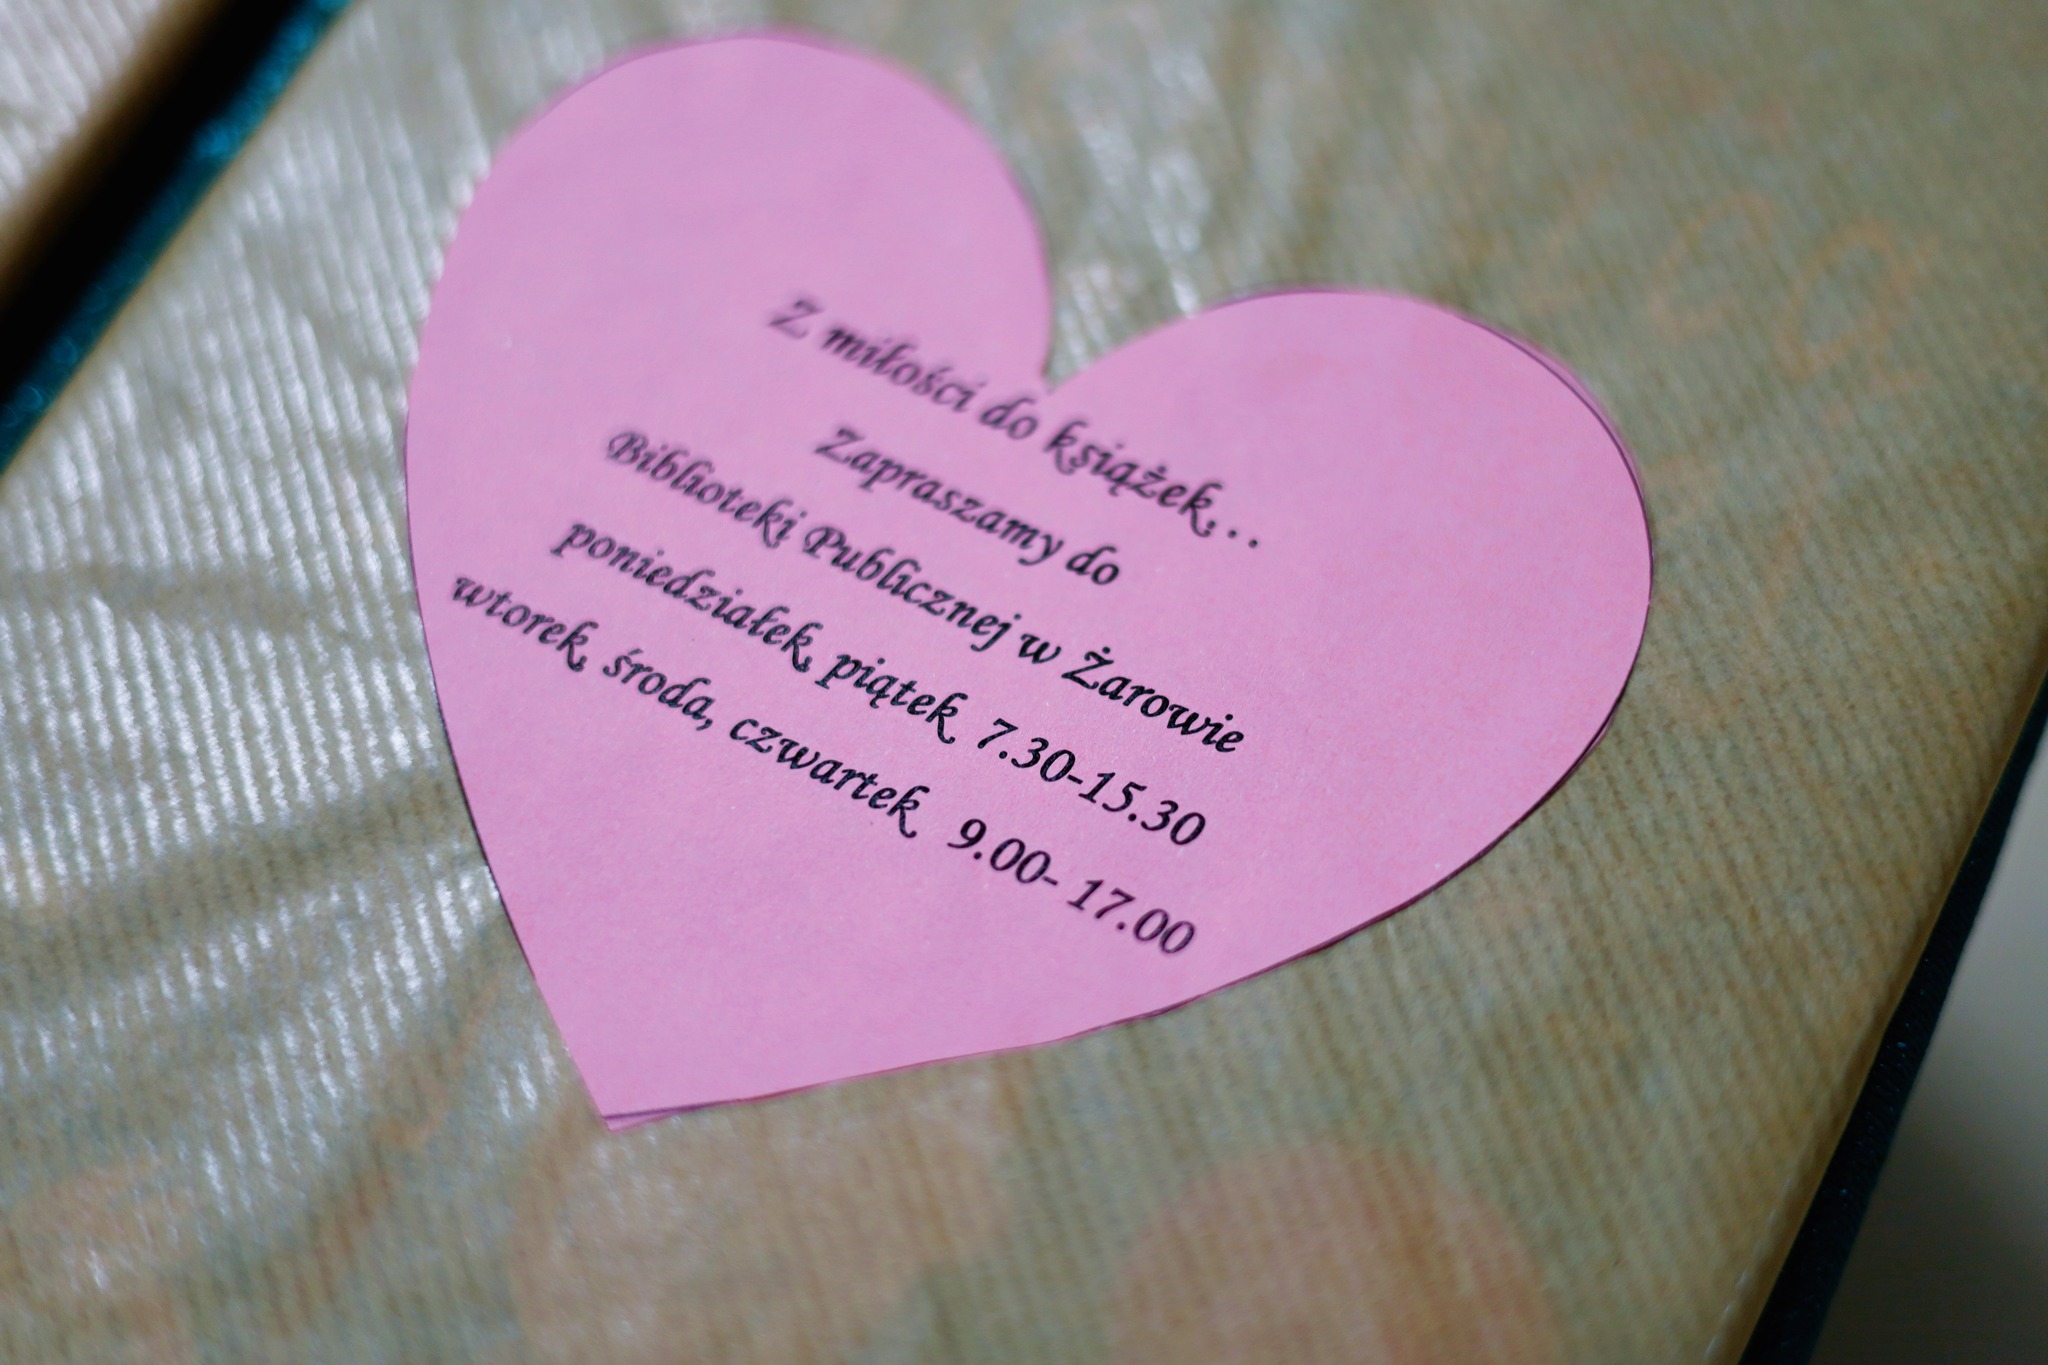 Z miłości do książek...
Zapraszamy do
Biblioteki Publicznej w Żarowie
poniedziałek, piątek 7.30-15.30
wtorek, środa, czwartek 9.00- 17.00